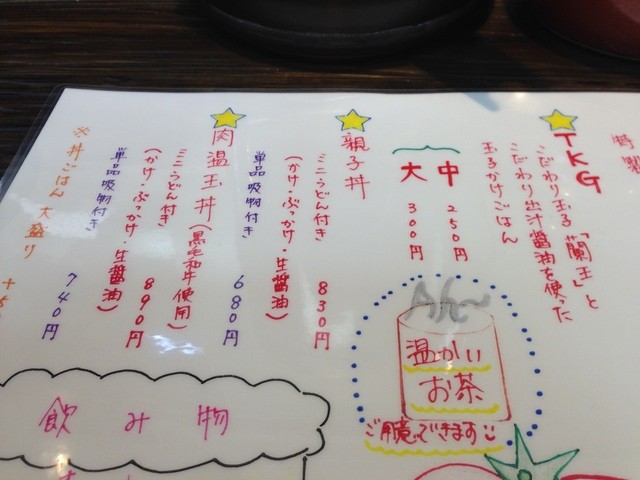 特製
TKG
こだわり玉子「蘭王」と
こだわり出汁醤油を使った
玉子かけごはん
中 250円
大 300円
親子丼
ミニうどん付き
(かけ・ぶっかけ・生醤油) 830円
単品吸物付き 680円
肉温玉丼(黒毛和牛使用)
ミニうどん付き
(かけ・ぶっかけ・生醤油) 890円
単品吸物付き 740円
※丼ごはん大盛り
温かい
お茶
ご用意できます
飲み物